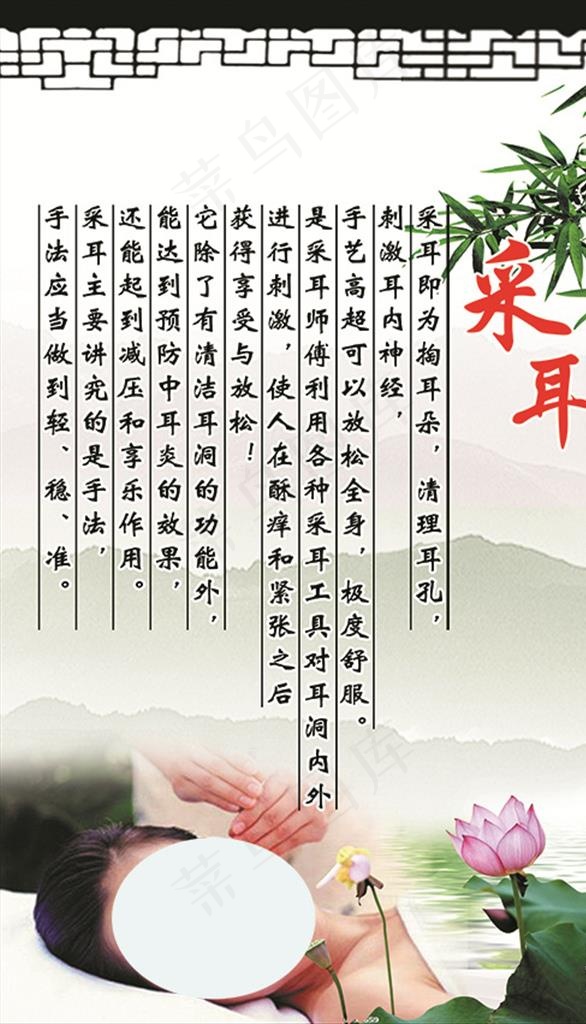 采耳
采耳即为掏耳朵，清理耳孔，
刺激耳内神经，
手艺高超可以放松全身，极度舒服。
是采耳师傅利用各种采耳工具对耳洞内外
进行刺激，使人在酥痒和紧张之后
获得享受与放松！
它除了有清洁耳洞的功能外，
能达到预防中耳炎的效果，
还能起到减压和享乐作用。
采耳主要讲究的是手法，
手法应当做到轻、稳、准。
菜鸟图库
菜鸟图库
菜鸟图库